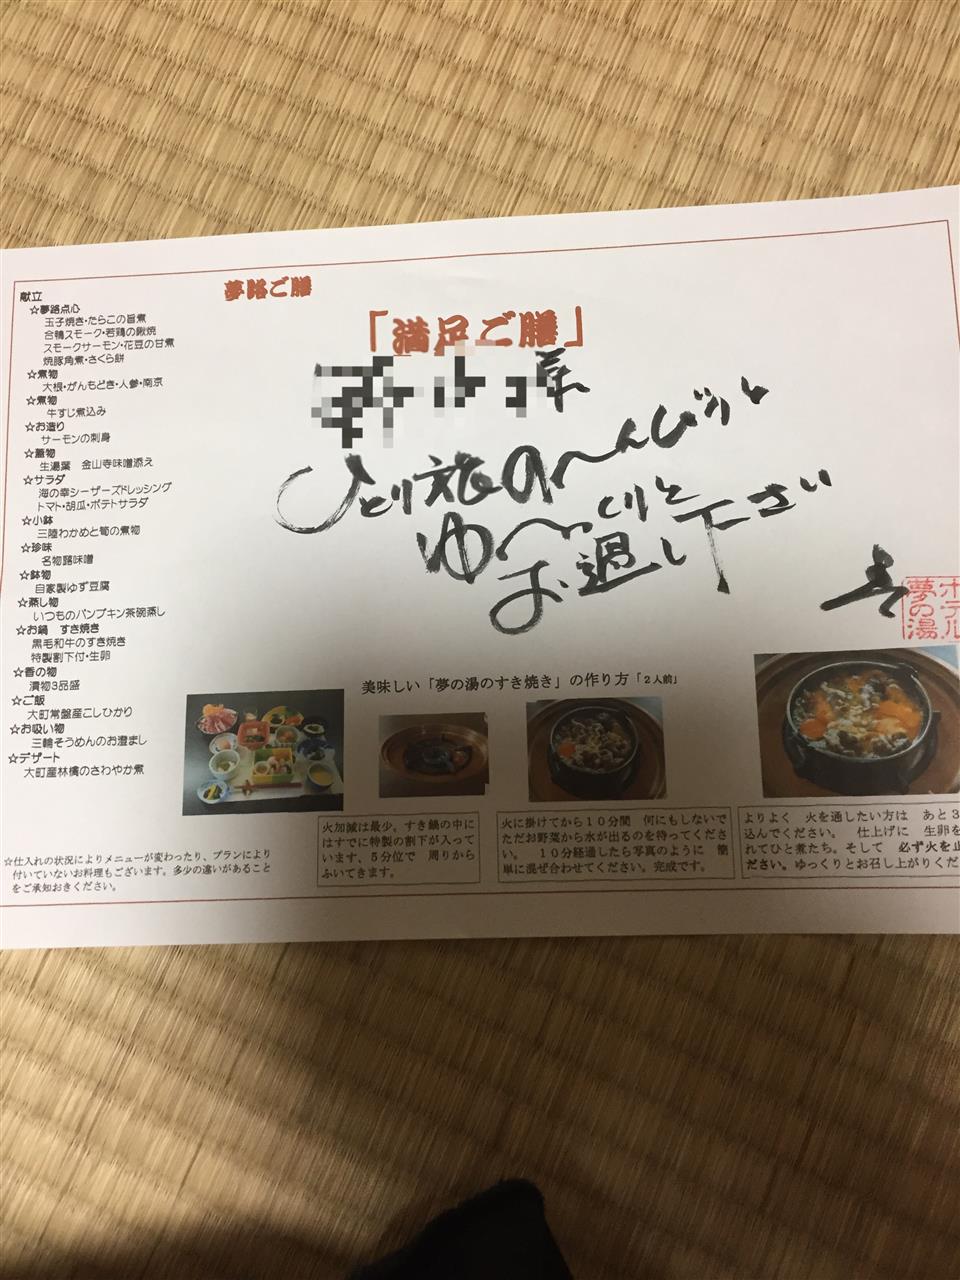 献立
☆夢路点心
玉子焼き・たらこの旨煮
合鴨スモーク・若鶏の鍬焼
スモークサーモン・花豆の甘煮
焼豚角煮・さくら餅
☆煮物
大根・がんもどき・人参・南京
☆煮物
牛すじ煮込み
☆お造り
サーモンの刺身
☆蓋物
生湯葉 金山寺味噌添え
☆サラダ
海の幸シーザーズドレッシング
トマト・胡瓜・ポテトサラダ
☆小鉢
三陸わかめと筍の煮物
☆珍味
名物蕗味噌
☆鉢物
自家製ゆず豆腐
☆蒸し物
いつものパンプキン茶碗蒸し
☆お鍋 すき焼き
黒毛和牛のすき焼き
特製割下付・生卵
☆香の物
漬物3品盛
☆ご飯
大町常盤産こしひかり
☆お吸い物
三輪そうめんのお澄まし
☆デザート
大町産林檎のさわやか煮
☆仕入れの状況によりメニューが変わったり、プランにより
付いていないお料理もございます。多少の違いがあること
をご承知おきください。
夢路ご膳
「満足ご膳」
様
ひとり旅の〜んびりと
ゆ〜っくりと
お過し下さい
ホテル
夢の湯
美味しい「夢の湯のすき焼き」の作り方「２人前」
火加減は最少。すき鍋の中に
はすでに特製の割下が入って
います、５分位で 周りから
ふいてきます。
火に掛けてから１０分間 何にもしないで
ただお野菜から水が出るのを待ってくださ
い。 １０分経過したら写真のように 簡
単に混ぜ合わせてください。完成です。
よりよく 火を通したい方は あと３
込んでください。 仕上げに 生卵を
れてひと煮たち。そして 必ず火を止
ださい。ゆっくりとお召し上がりくだ